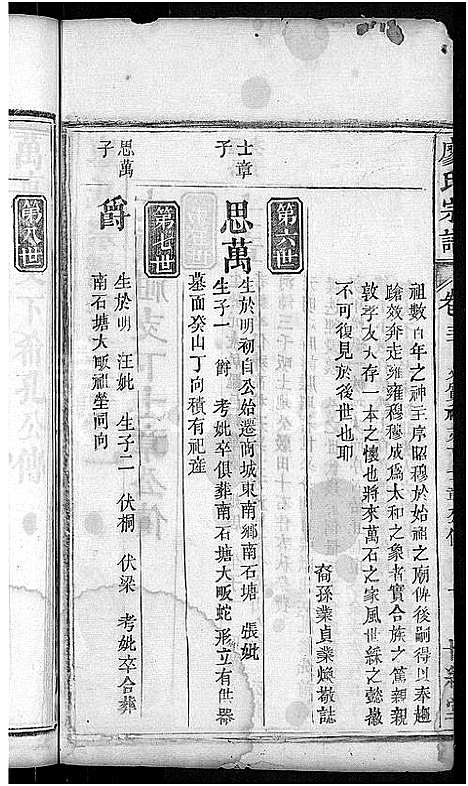 廖氏宗譜
祖數百年之神主序昭穆於始祖之廟俾後嗣得以奉趨
蹌效奔走雍雍穆穆咸爲太和之象者實合族之篤親親
敦孝友大存一本之懷也將來萬石之家風世綵之懿徽
不可復見於後世也耶
裔孫業貞業燦敬誌
第六世
士章子
思萬
生於明初自公始遷荊城東南鄉南石塘 張妣
生子一 爵 考妣卒俱葬南石塘大畈蛇形立有世器
墓面癸山丁向積有祀產
第七世
思萬子
爵
生於明 汪妣 生子二 伏桐 伏梁 考妣卒合葬
南石塘大畈祖塋同向
第八世